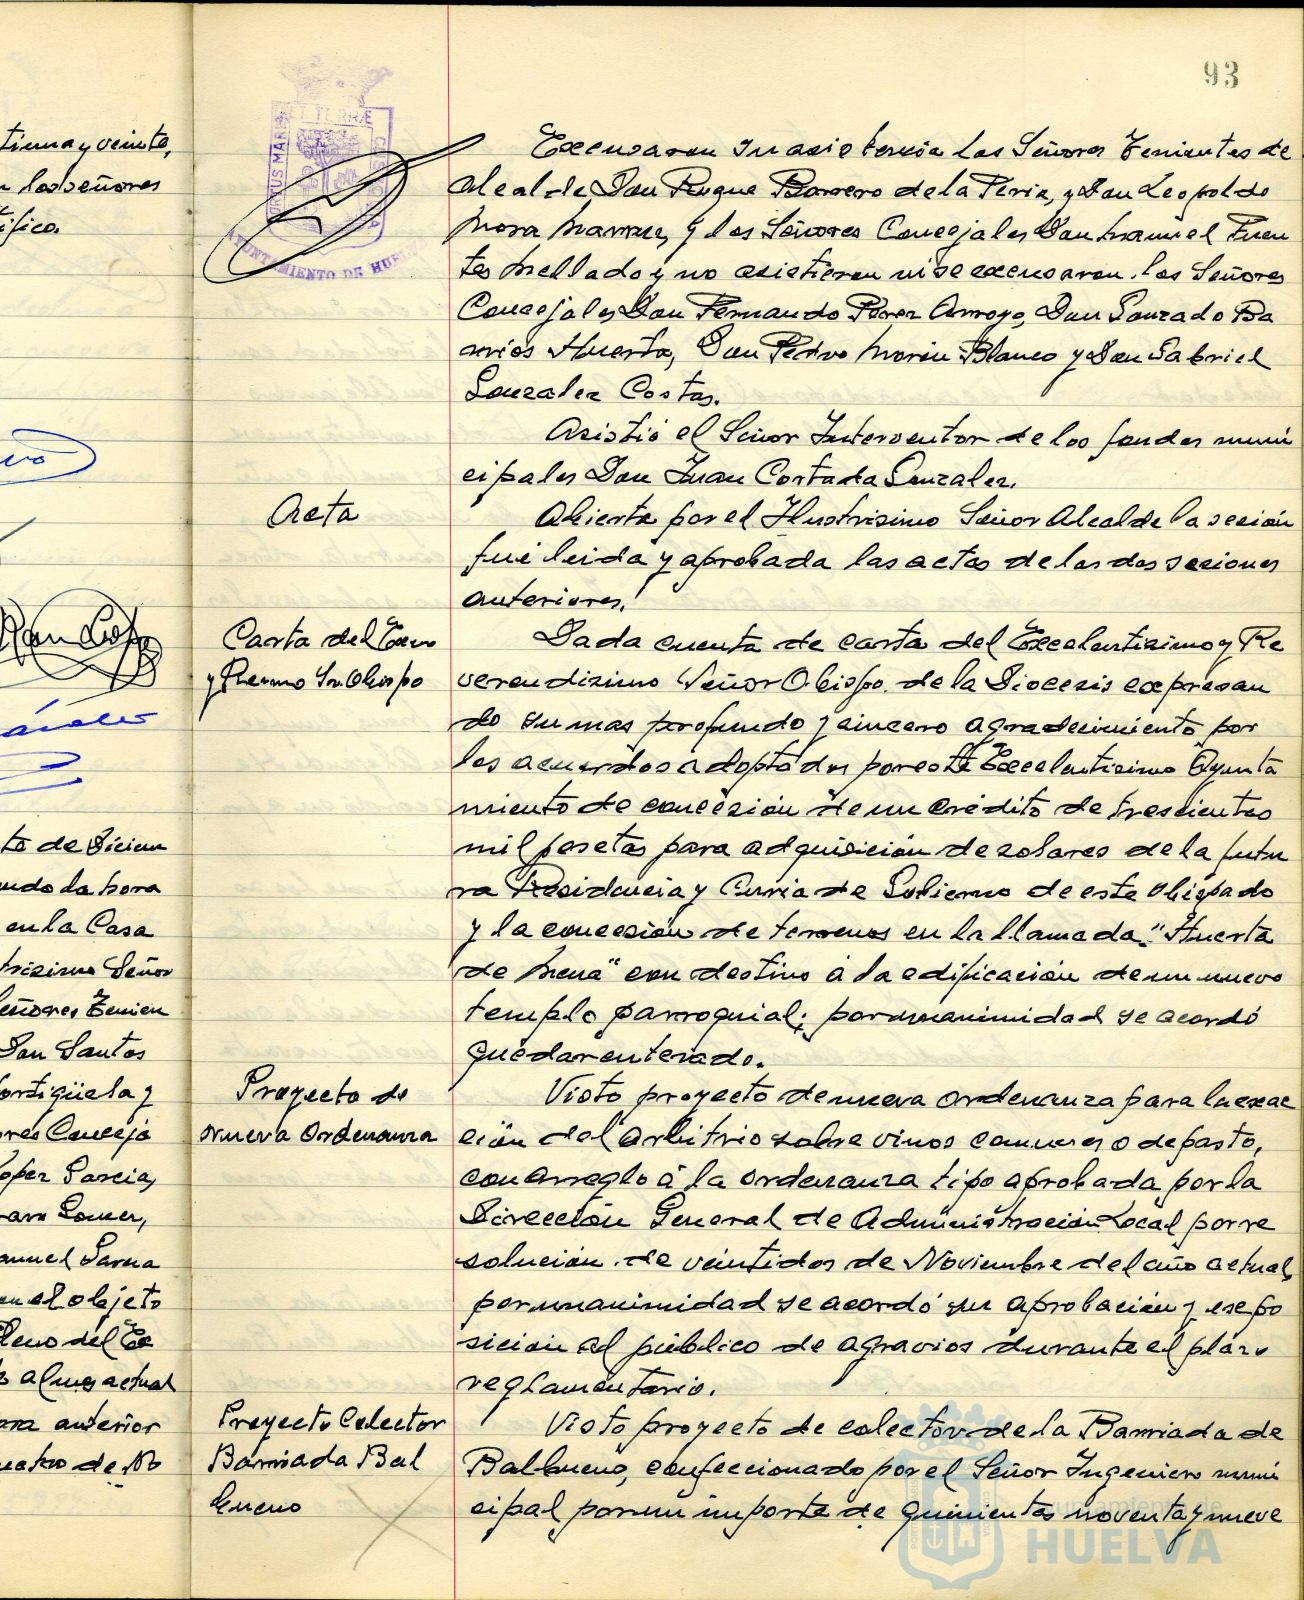 93
tiema y veinte,
los señores
tifico.
to de Diciem
ndo la hora
en la Casa
trisimo Señor
eñores Tenien
Don Santos
ortigüela y
res Conceja
opez Garcia,
Gomez,
anuel Garcia
on el objeto
Pleno del Ex
al mes actual
ora anterior
uatro de No
PORTUS MARIS ET TERRÆ CUSTODIA
AYUNTAMIENTO DE HUELVA
Excusaron su asistencia los Señores Tenientes de
Alcalde Don Roque Barrero de la Feria, y Don Leopoldo
Mora Marquez y los Señores Concejales Don Manuel Fuen
tes Mellado y no asistieron ni se excusaron los Señores
Concejales Don Fernando Perez Arroyo, Don Gonzado Ba
rrios Huerta, Don Pedro Morón Blanco y Don Gabriel
Gonzalez Costas.
Asistió el Señor Interventor de los fondos muni
cipales Don Juan Cortada Gonzalez.
Acta
Abierta por el Ilustrisimo Señor Alcalde la sesión
fué leida y aprobada las actas de las dos sesiones
anteriores.
Carta del Excmo
y Rvmo Sr. Obispo
Dada cuenta de carta del Excelentisimo y Re
verendisimo Señor Obispo de la Diocesis expresan
do su mas profundo y sincero agradecimiento por
los acuerdos adoptados por este Excelentisimo Ayunta
miento de concesión de un crédito de trescientas
mil pesetas para adquisición de solares de la futu
ra Residencia y Curia de Gobierno de este Obispado
y la concesión de terrenos en la llamada "Huerta
de Mena" con destino á la edificación de un nuevo
templo parroquial; por unanimidad se acordó
quedar enterado.
Proyecto de
nueva ordenanza
Visto proyecto de nueva ordenanza para la exac
ción del arbitrio sobre vinos comunes o de pasto,
con arreglo á la ordenanza tipo aprobada por la
Dirección General de Administración Local por re
solución de veintidos de Noviembre del año actual,
por unanimidad se acordó su aprobación y expo
sición al público de agravios durante el plazo
reglamentario.
Proyecto Colector
Barriada Bal
bueno
Visto proyecto de colector de la Barriada de
Balbueno, confeccionado por el Señor Ingeniero muni
cipal por un importe de quinientas noventa y nueve
Ayuntamiento de
HUELVA